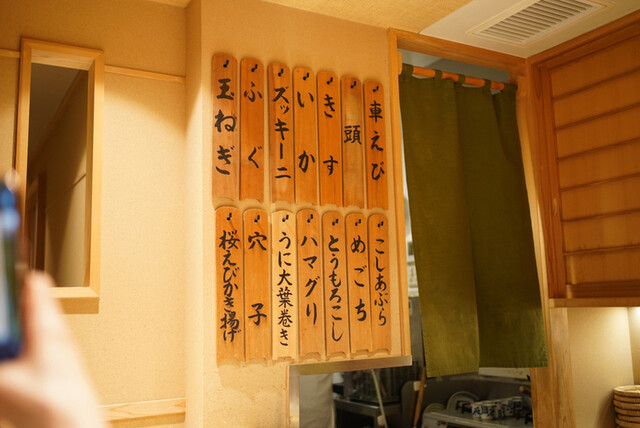 車えび
頭
きす
いか
ズッキーニ
ふぐ
玉ねぎ
こしあぶら
めごち
とうもろこし
ハマグリ
うに大葉巻き
穴子
桜えびかき揚げ